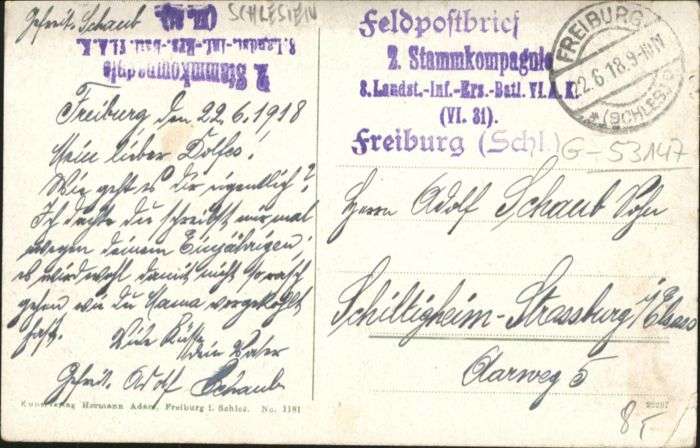 Gefrt. Schaub
SCHLESIEN
2. Stammkompagnie
8. Landst.-Inf.-Ers.-Batl. VI. A. K.
(VI. 31).
Freiburg den 22.6.1918
Mein lieber Dolfes!
Wie geht es dir eigentlich?
Ich dachte du schreibst mir mal
wegen deinem Einjährigen,
es wird wohl damit nicht so rasch
gehen wie du Mama vorgekohlt
hast. Viele Küsse
dein Vater
Gefrt. Adolf Schaub
Kunstverlag Hermann Adam, Freiburg i. Schles. No. 1181
Feldpostbrief
2. Stammkompagnie
8. Landst.-Inf.-Ers.-Batl. VI. A. K.
(VI. 31).
Freiburg (Schl.)
FREIBURG
22.6.18.9-10V
*(SCHLES.)
G-53147
Herrn Adolf Schaub Sohn
Schiltigheim-Strassburg i/Elsass
Aarweg 5
8,-